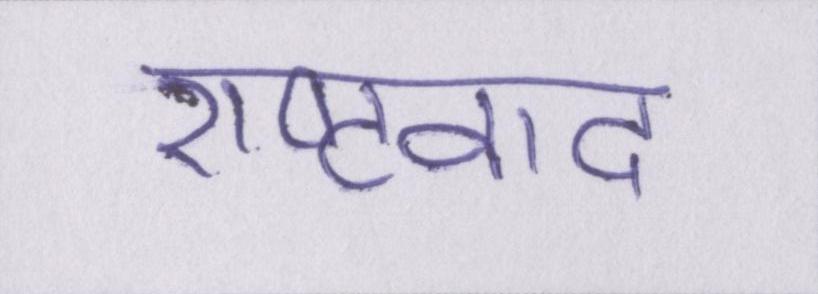 राष्टवाद